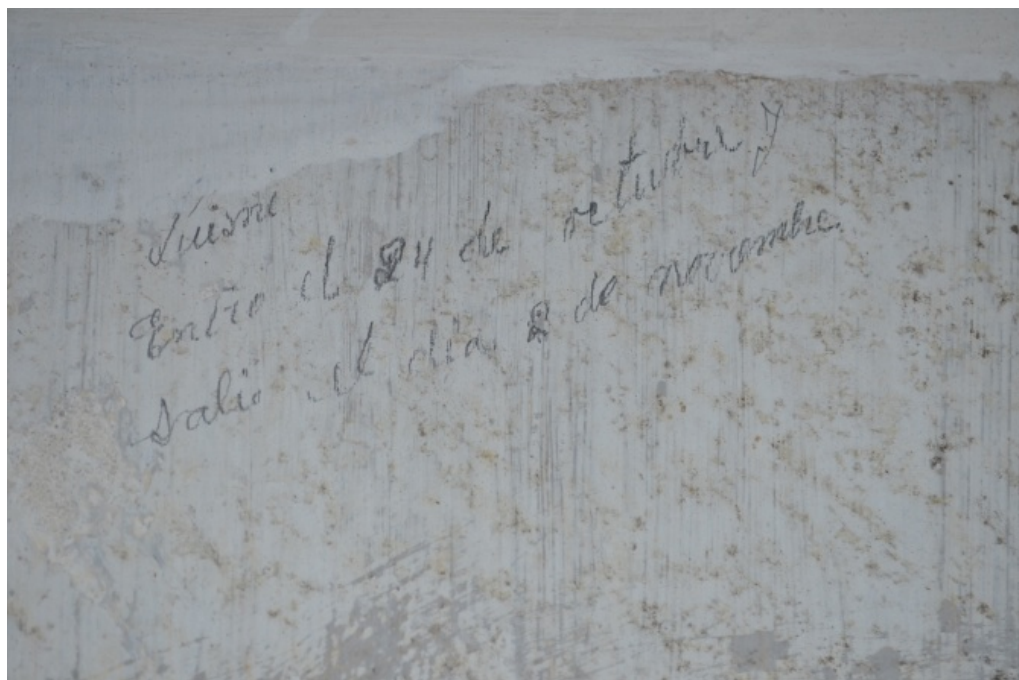 Entro el 24 de octubre y
salio el día 2 de novembre.